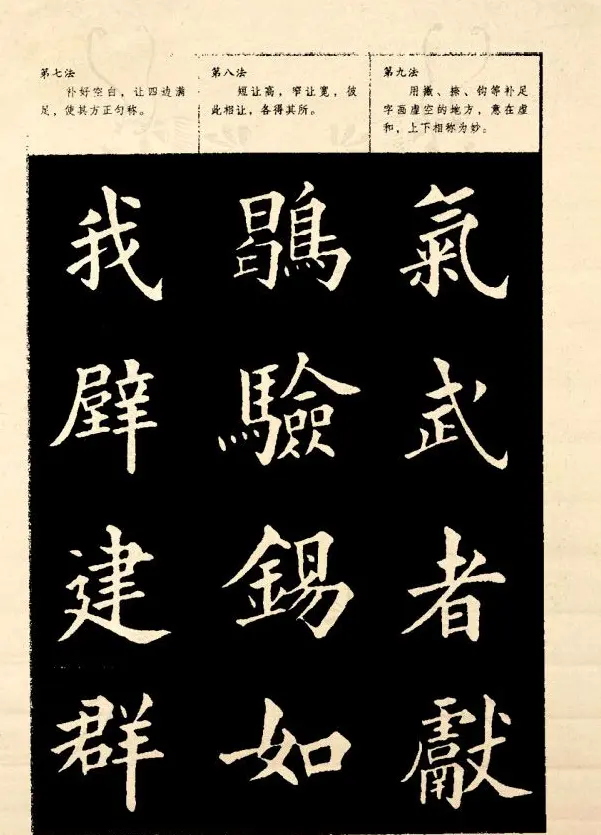 第七法
补好空白，让四边满
足，使其方正匀称。
我
辟
建
群
第八法
短让高，窄让宽，彼
此相让，各得其所。
鶡
驗
錫
如
第九法
用撇、捺、钩等补足
字画虚空的地方，意在虚
和，上下相称为妙。
氣
武
者
獻